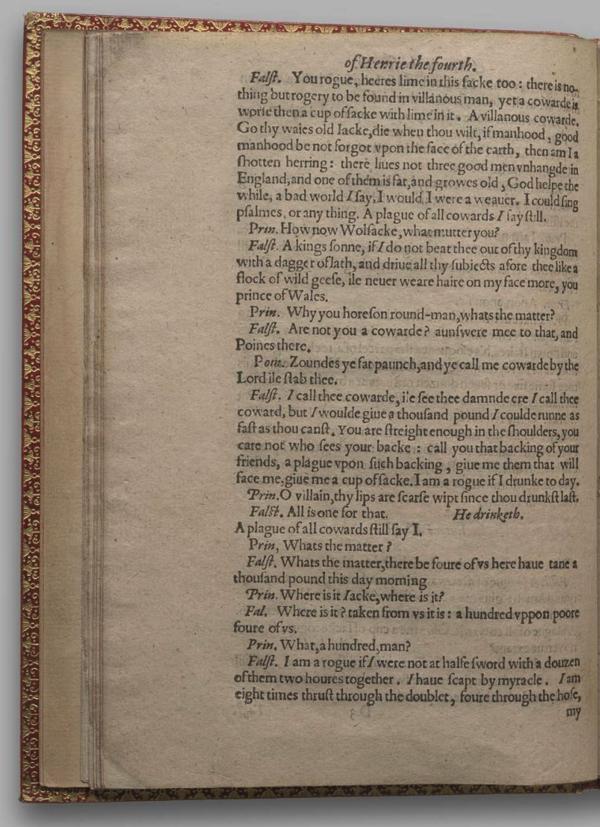 of Henrie the fourth.
Falst. You rogue, heeres lime in this sacke too : there is no-
thing but rogery to be found in villanous man, yet a cowarde is
worse then a cup of sacke with lime in it. A villanous cowarde.
Go thy waies old Iacke, die when thou wilt, if manhood, good
manhood be not forgot vpon the face of the earth, then am I a
shotten herring : there liues not three good men vnhangde in
England, and one of them is fat, and growes old, God helpe the
while, a bad world I say. I would I were a weauer. I could sing
psalmes, or any thing. A plague of all cowards I say still.
Prin. How now Wolsacke, what mutter you?
Falst. A kings sonne, if I do not beat thee out of thy kingdom
with a dagger of lath, and driue all thy subiects afore thee like a
flock of wild geese, ile neuer weare haire on my face more, you
prince of Wales.
Prin. Why you horeson round-man, whats the matter?
Falst. Are not you a cowarde? aunswere mee to that, and
Poines there.
Poin. Zoundes ye fat paunch, and ye call me cowarde by the
Lord ile stab thee.
Falst. I call thee cowarde, ile see thee damnde ere I call thee
coward, but I woulde giue a thousand pound I coulde runne as
fast as thou canst. You are streight enough in the shoulders, you
care not who sees your backe : call you that backing of your
friends, a plague vpon such backing, giue me them that will
face me, giue me a cup of sacke. I am a rogue if I drunke to day.
Prin. O villain, thy lips are scarse wipt since thou drunkst last.
Falst. All is one for that. He drinketh.
A plague of all cowards still say I.
Prin. Whats the matter?
Falst. Whats the matter, there be foure of vs here haue tane a
thousand pound this day morning
Prin. Where is it Iacke, where is it?
Fal. Where is it? taken from vs it is : a hundred vppon poore
foure of vs.
Prin. What, a hundred, man?
Falst. I am a rogue if I were not at halfe sword with a douzen
of them two houres together. I haue scapt by myracle. I am
eight times thrust through the doublet, foure through the hose,
my